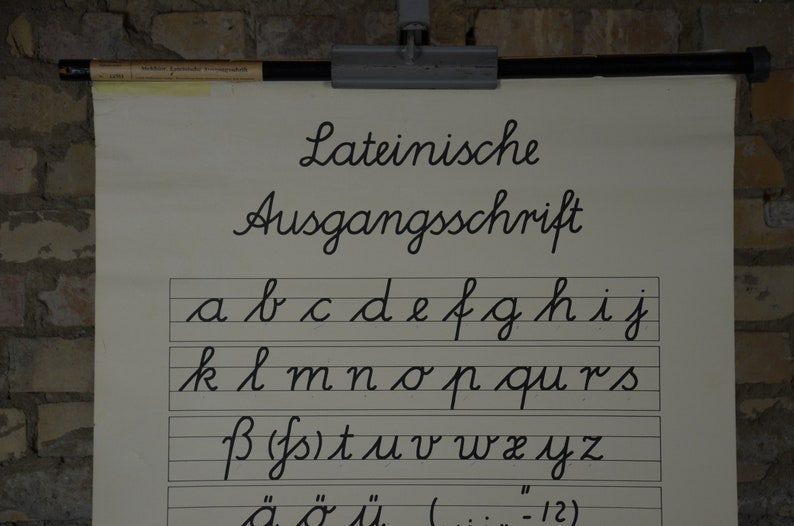 Mühlbier, Lateinische Ausgangsschrift
Lateinische
Ausgangsschrift
a b c d e f g h i j
k l m n o p qu r s
ß (ſs) t u v w x y z
ä ö ü